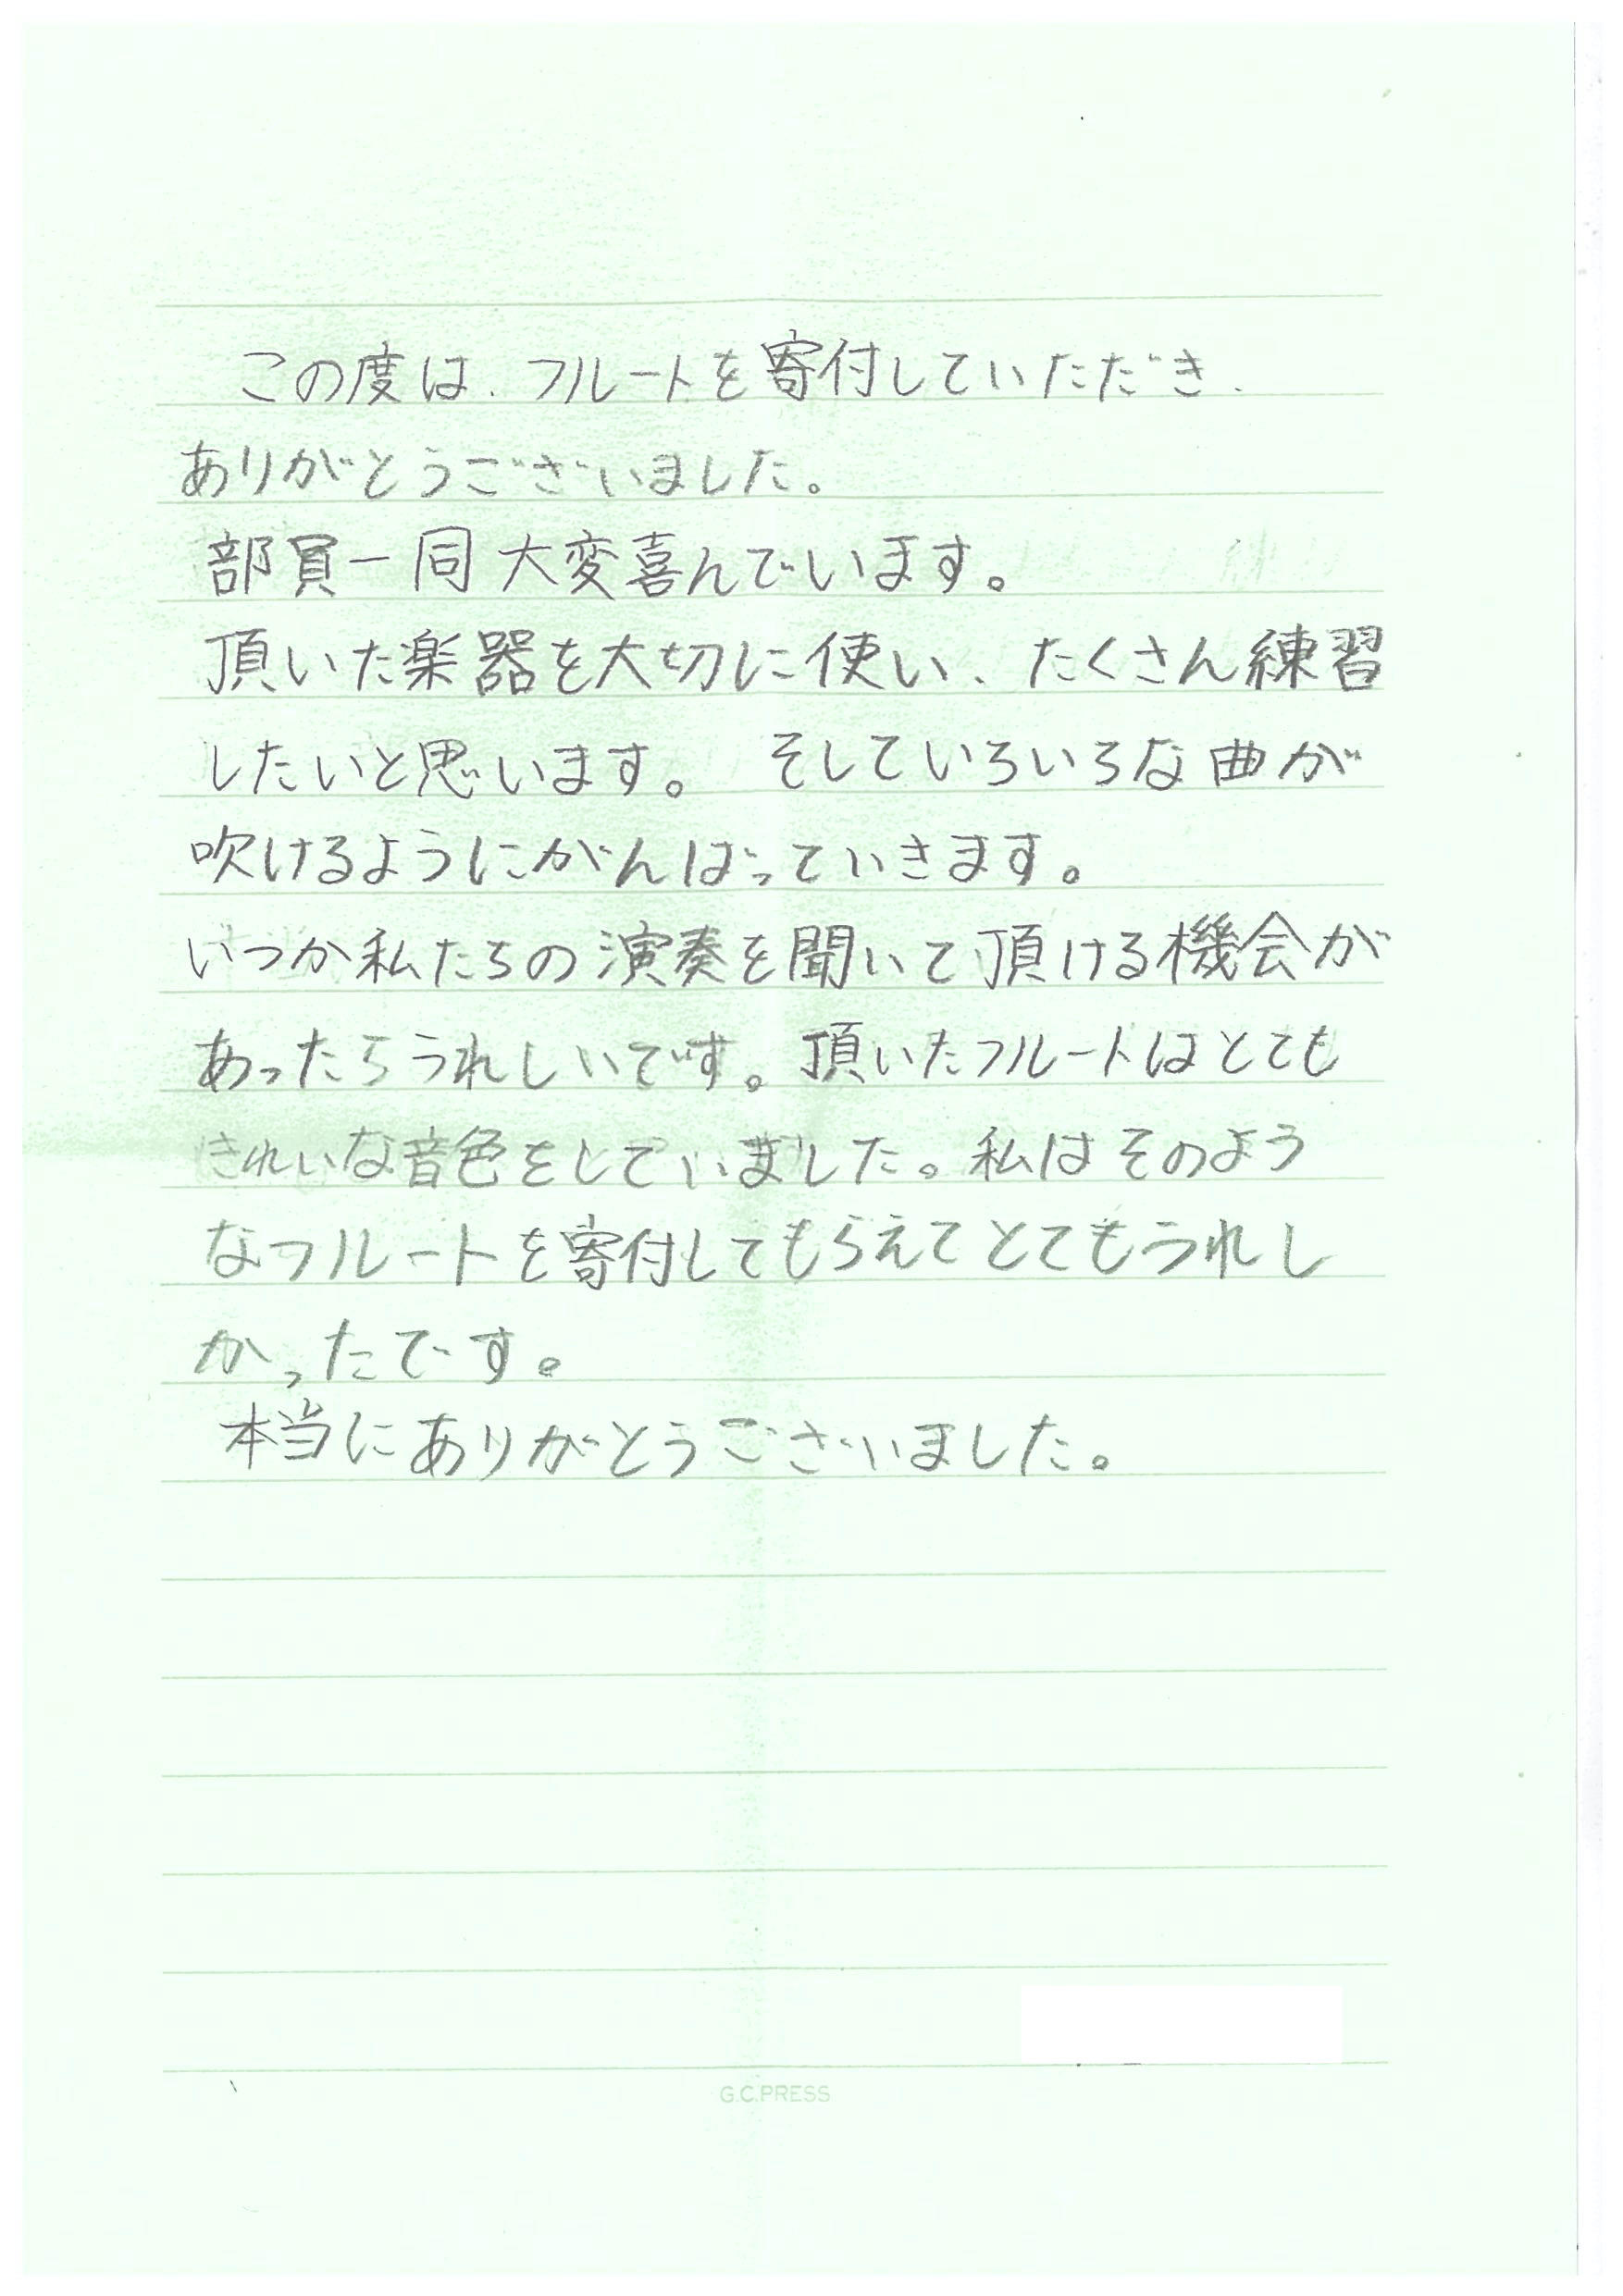 この度は、フルートを寄付していただき、
ありがとうございました。
部員一同 大変喜んでいます。
頂いた楽器を大切に使い、たくさん練習
したいと思います。 そしていろいろな曲が
吹けるようにがんばっていきます。
いつか私たちの演奏を聞いて頂ける機会が
あったらうれしいです。頂いたフルートはとても
きれいな音色をしていました。私はそのよう
なフルートを寄付してもらえてとてもうれし
かったです。
本当にありがとうございました。
G.C.PRESS